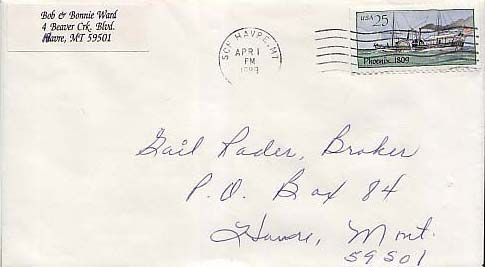 Bob & Bonnie Ward
4 Beaver Crk. Blvd.
Havre, MT 59501
SCF HAVRE, MT
APR 1
PM
1989
USA 25
Phoenix 1809
Gail Rader, Broker
P.O. Box 84
Havre, Mont.
59501